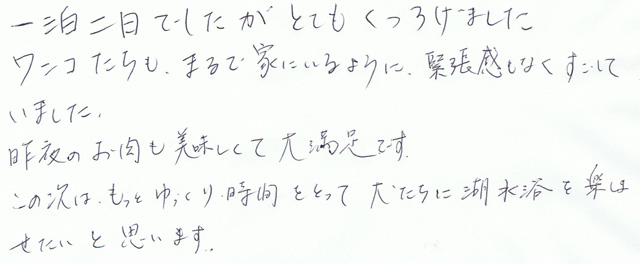 一泊二日でしたがとてもくつろげました
ワンコたちも、まるで家にいるように、緊張感もなくすごして
いました。
昨夜のお肉も美味しくて大満足です。
この次は、もっとゆっくり時間をとって犬たちに湖水浴を楽しま
せたいと思います。